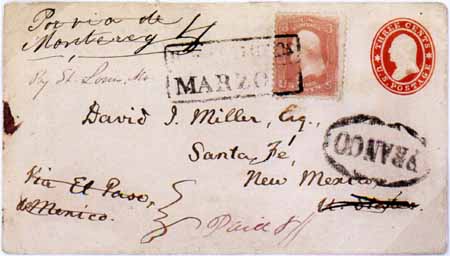 Por via de
Monterey
By St. Louis, Mo.
MARZO
THREE CENTS
U.S. POSTAGE
David J. Miller, Esq.,
Santa Fé,
FRANCO
New Mexico
Via El Paso,
U. States.
de Mexico.
Paid